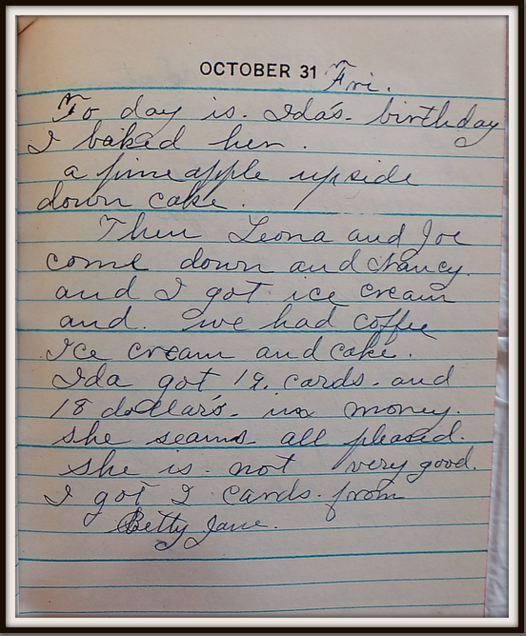 OCTOBER 31 Fri.
To day is. Ida's. birthday
I baked her.
a pineapple upside
down cake.
Then Leona and Joe
come down and Nancy.
and I got ice cream
and. we had coffee
Ice cream and cake.
Ida got 12. cards. and
18 dollar's. in money.
she seams all pleasd.
she is. not very good.
I got 2 cards. from
Betty Jane.